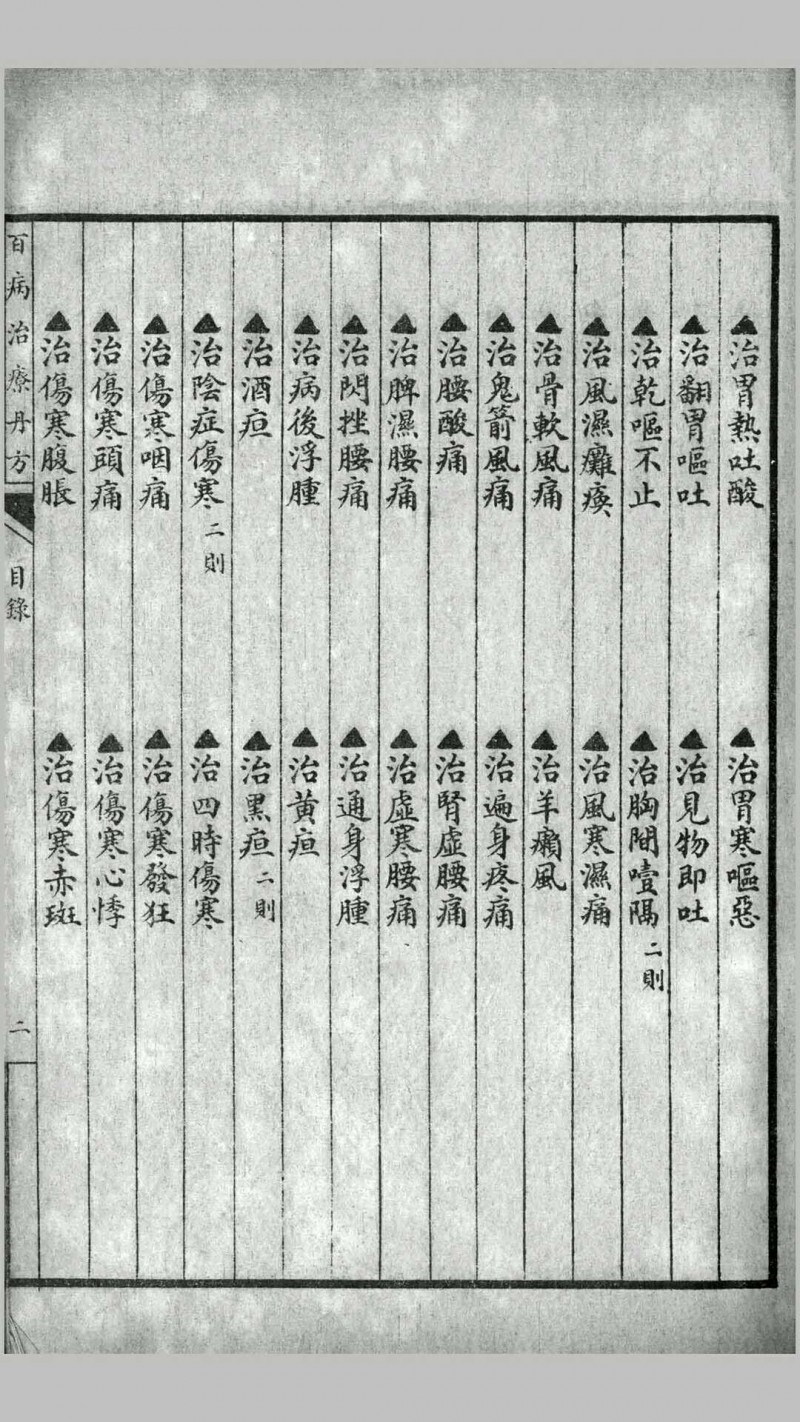 ▲治胃熱吐酸
▲治胃寒嘔惡
▲治翻胃嘔吐
▲治見物即吐
▲治乾嘔不止
▲治胸間噎隔 二則
▲治風濕癱瘓
▲治風寒濕痛
▲治骨軟風痛
▲治羊癇風
▲治鬼箭風痛
▲治遍身疼痛
▲治腰酸痛
▲治腎虛腰痛
▲治脾濕腰痛
▲治虛寒腰痛
▲治閃挫腰痛
▲治通身浮腫
▲治病後浮腫
▲治黃疸
▲治酒疸
▲治黑疸 二則
▲治陰症傷寒 二則
▲治四時傷寒
▲治傷寒咽痛
▲治傷寒發狂
▲治傷寒頭痛
▲治傷寒心悸
▲治傷寒腹脹
▲治傷寒赤斑
百病治療丹方 目錄 二